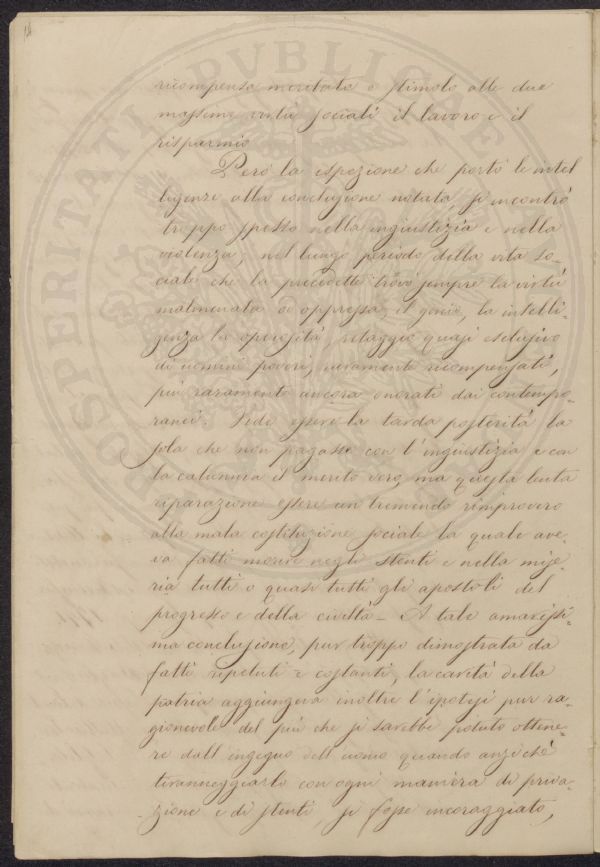 ricompensa meritata o stimolo alle due
massime virtù sociali il lavoro e il
risparmio
Però la ispezione che portò le intel
ligenze alla conclusione notata, si incontrò
troppo spesso nella ingiustizia e nella
violenza; nel lungo periodo della vita so-
ciale che la precedette trovò sempre la virtù
malmenata od oppressa, il genio, la intelli-
genza la operosità, retaggio quasi esclusivo
di uomini poveri, raramente ricompensati,
più raramente ancora onorati dai contempo-
ranei. Vide essere la tarda posterità la
sola che non pagasse con l'ingiustizia e con
la calunnia il merito vero, ma questa lenta
riparazione essere un tremendo rimprovero
alla mala costituzione sociale la quale ave-
va fatti morire negli stenti e nella mise-
ria tutti o quasi tutti gli apostoli del
progresso e della civiltà — A tale amarissi-
ma conclusione, pur troppo dimostrata da
fatti ripetuti e costanti, la carità della
patria aggiungeva inoltre l'ipotesi pur ra-
gionevole del più che si sarebbe potuto ottene-
re dall'ingegno dell'uomo quando anzichè
tiranneggiarlo con ogni maniera di priva-
zione e di stenti, si fosse incoraggiato,
PROSPERITATI PVBLICAE